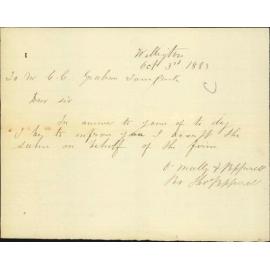 Wellington
Oct 3rd 1883
To Mr C. C. Graham
Dear sir
In answer to yours of to day
beg to inform you I accept the
same on behalf of the firm
O'Mally & Pepperell
Per Thos Pepperell